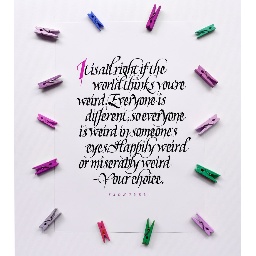 It is all right if the
world thinks you're
weird. Everyone is
different, so everyone
is weird in someone's
eyes. Happily weird
or miserably weird
~Your choice.